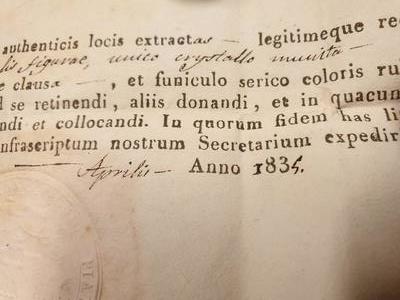 authenticis locis extractas legitimeque re
lis figurae, unico crystallo munita
e clausa , et funiculo serico coloris ru
d se retinendi, aliis donandi, et in quacum
ndi et collocandi. In quorum fidem has li
nfrascriptum nostrum Secretarium expedir
Aprilis Anno 1835.